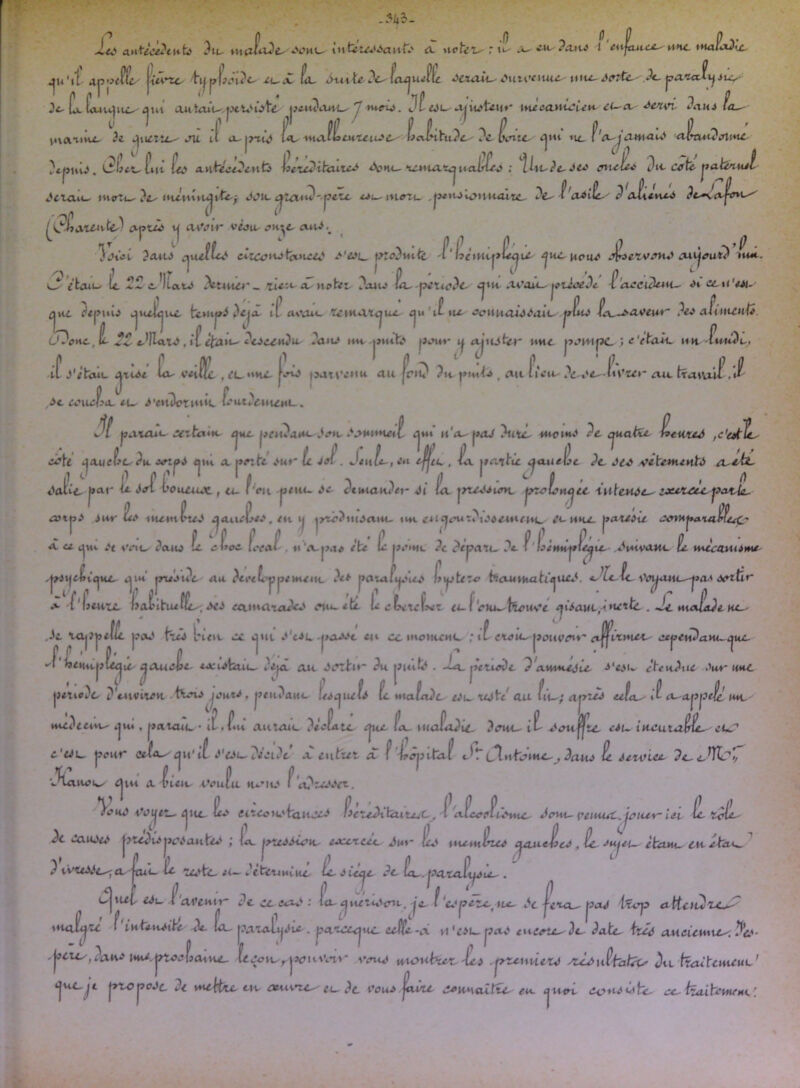 -343-
Les antécédents du malade sont intéressants à noter : il a eu dans l'enfance une maladie
qu'il appelle fièvre typhoïde et à la suite de laquelle serait survenue une sorte de paralysie
de la langue qui aurait persisté pendant 7 mois. Il est ajusteur mécanicien et a servi dans la
marine de guerre où il a pris la malheureuse habitude de boire qui ne l'a jamais abandonné
depuis. Chez lui les antécédents héréditaires sont remarquables : Un de ses oncles du côté paternel
serait mort de méningite, son grand-père est mort pensionnaire de l'asile d'aliénés de Lafon
(Charente) après y avoir vécu onze ans.
Voici dans quelles circonstances s'est produite l'hémiplégie que nous observons aujourd'hui.
C'était le 22 Mars dernier _ rien à noter dans la période qui avait précédé l'accident si ce n'est
que depuis quelque temps déjà il avait remarqué qu'il ne connaissait plus la saveur des aliments.
Donc, le 22 Mars, il était descendu dans un puits pour y ajuster une pompe ; c'était un lundi,
il s'était grisé la veille, et une fois parvenu au fond du puits, au lieu de se livrer au travail, il
se coucha et s'endormit lourdement.
Il paraît certain que pendant son sommeil qui n'a pas duré moins de quatre heures, c'est le
côté gauche du corps qui a porté sur le sol. Seule, en effet, la partie gauche de ses vêtements a été
salie par le sol boueux, et l'on peut se demander si la pression prolongée intense exercée par le
corps sur les membres gauches, en y produisant un engourdissement et une parésie comparable
à ce qui se voit dans le choc local, n'a pas été le point de départ de l'hémiplégie suivant le mécanisme
psychique qui préside au développement des paralysies hystéro traumatiques. Ne le voyant pas sortir
à l'heure habituelle, ses camarades ont été le chercher et l'ont trouvé gisant, inerte. Le malade ne
se rappelle pas très bien ce qui s'est passé en ce moment ; il croit pouvoir affirmer cependant que
l'hémiplégie gauche existait déjà au sortir du puits. La période d'amnésie s'est étendue sur une
période d'environ trois jours, pendant lesquels le malade est resté au lit ; après cela il a appelé un
médecin qui, paraît-il, lui aurait déclaré que la maladie dont il souffre est incurable et
c'est pour cela qu'il s'est décidé à entrer à l'hôpital St Antoine, dans le service de Mr
Hanot qui a bien voulu nous l'adresser.
Vous voyez que les circonstances héréditaires, l'alcoolisme sont venus jouer ici le rôle
de causes prédisposantes ; la pression exercée sur les membres gauches, le sujet étant en état
d'ivresse, a fait le reste et déterminé le siège de la paralysie.
Quel est l'avenir de ce cas : la guérison, je l'espère, ne se fera pas trop attendre
malgré l'intensité de la paralysie parce que celle-ci n'est pas encore de date très ancienne. Peut-
être, dans une prochaine leçon, pouvoir vous montrer les premiers résultats du traitement
que je propose de mettre en œuvre et de vous faire connaître en quoi consiste ce traitement.